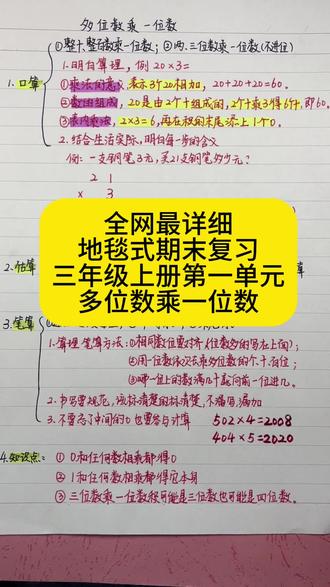 多位数乘一位数
①整十、整百数乘一位数；②两、三位数乘一位数(不进位)
1.明白算理，例 20×3=
1.口算
①乘法的意义,表示3个20相加，20+20+20=60。
②数的组成，20是由2个十组成的，2个十乘3得6个十，即60。
③表内乘法，2×3=6，再在积的末尾添上1个0。
2.结合生活实际，明白每一步的含义
例：一支钢笔3元，买21支钢笔多少元？
2 1
× 3
全网最详细
地毯式期末复习
三年级上册第一单元
多位数乘一位数
2.估算
3.笔算
1.算理 笔算方法：①相同数位要对齐(位数多的写在上面)；
②用一位数依次去乘多位数的个、十、百位；
③哪一位上的数满几十就向前一位进几。
2.书写要规范，该标清楚的标清楚，不漏写、漏加
3.不要忘了中间的0也要参与计算
502×4=2008
404×5=2020
4.知识点：
①0和任何数相乘都得0
②1和任何数相乘都得它本身
③三位数乘一位数积可能是三位数也可能是四位数。